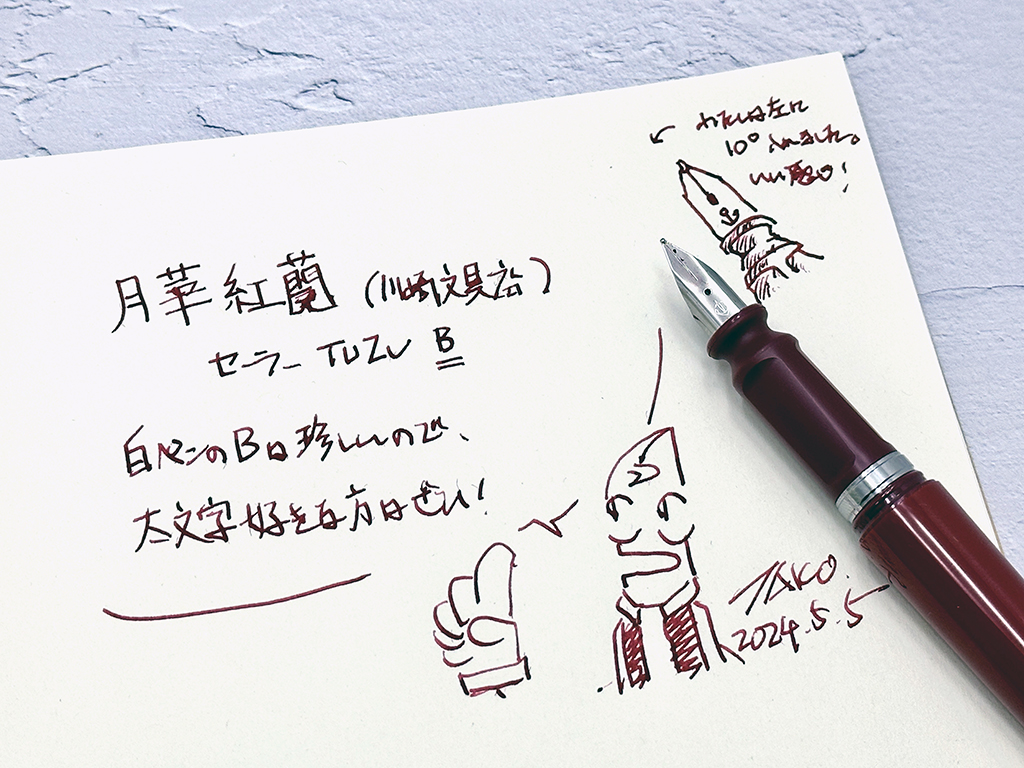 月華紅蘭(川崎文具店)
セーラー TUZU B
白ペンのBは珍しいので、
太文字好きな方はぜひ!
わたしは左に
10° ふれました。
いい感じ!
TAKO.
2024.5.5